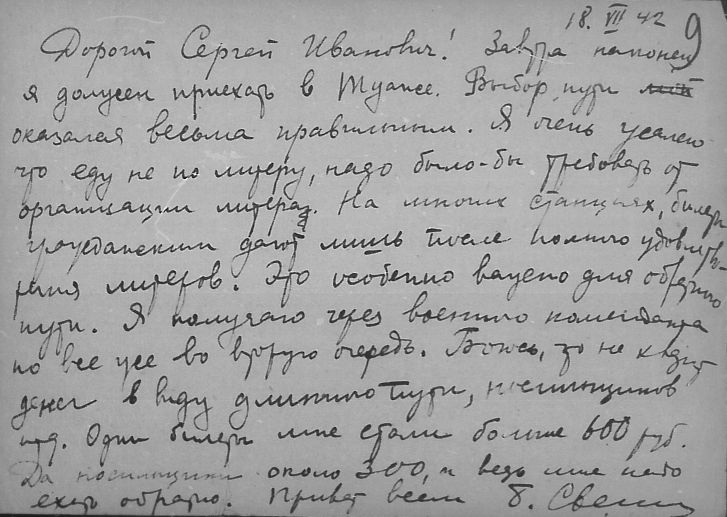 18. VII 42 9
Дорогой Сергей Иванович! Завтра наконец
я должен приехать в Туапсе. Выбор пути
оказался весьма правильным. Я очень жалею
что еду не по литеру, надо было-бы требовать от
организации литера. На многих станциях, билеты
гражданским дают лишь после полного удовлетво-
рения литеров. Это особенно важно для обратного
пути. Я получаю через военного коменданта
но все же во вторую очередь. Боюсь, что не хватит
денег в виду длинного пути, носильщиков
итд. Одни билеты мне стали больше 600 руб.
Да носильщики около 300, и ведь мне надо
ехать обратно. Привет всем Б.